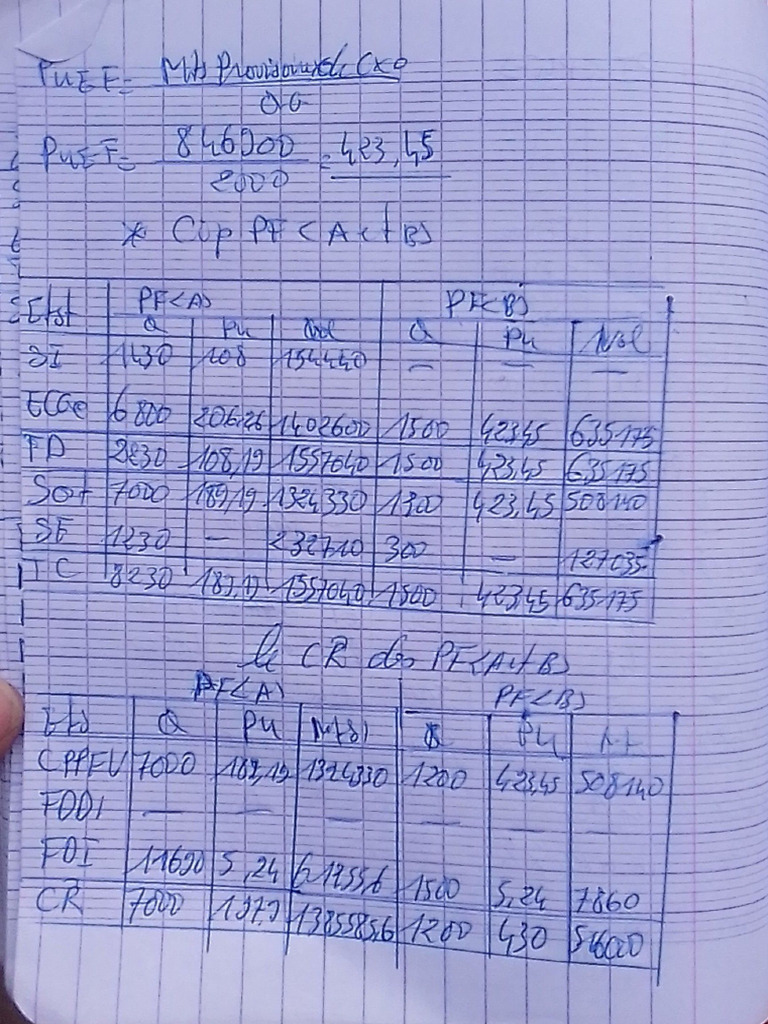 PUEF = Mts Provisionnel Cxe
QG
PUEF = 846900 = 423,45
2000
* Cup PF (A et B)
PF(A) PF(B)
Elts Q PU Mt Q PU Mt
SI 1430 108 154440 — — —
ECGe 6800 206,26 1402600 1500 423,45 635175
TD 8230 189,19 1557040 1500 423,45 635175
Sort 7000 189,19 1324330 1200 423,45 508140
SF 1230 — 232710 300 — 127035
TC 8230 189,19 1557040 1500 423,45 635175
le CR des PF (A et B)
PF(A) PF(B)
Elts Q PU Mts Q PU Mt
CPPFV 7000 189,19 1324330 1200 423,45 508140
FDDI — — — — — —
FDI 11690 5,24 61255,6 1500 5,24 7860
CR 7000 197,9 1385585,6 1200 430 516000